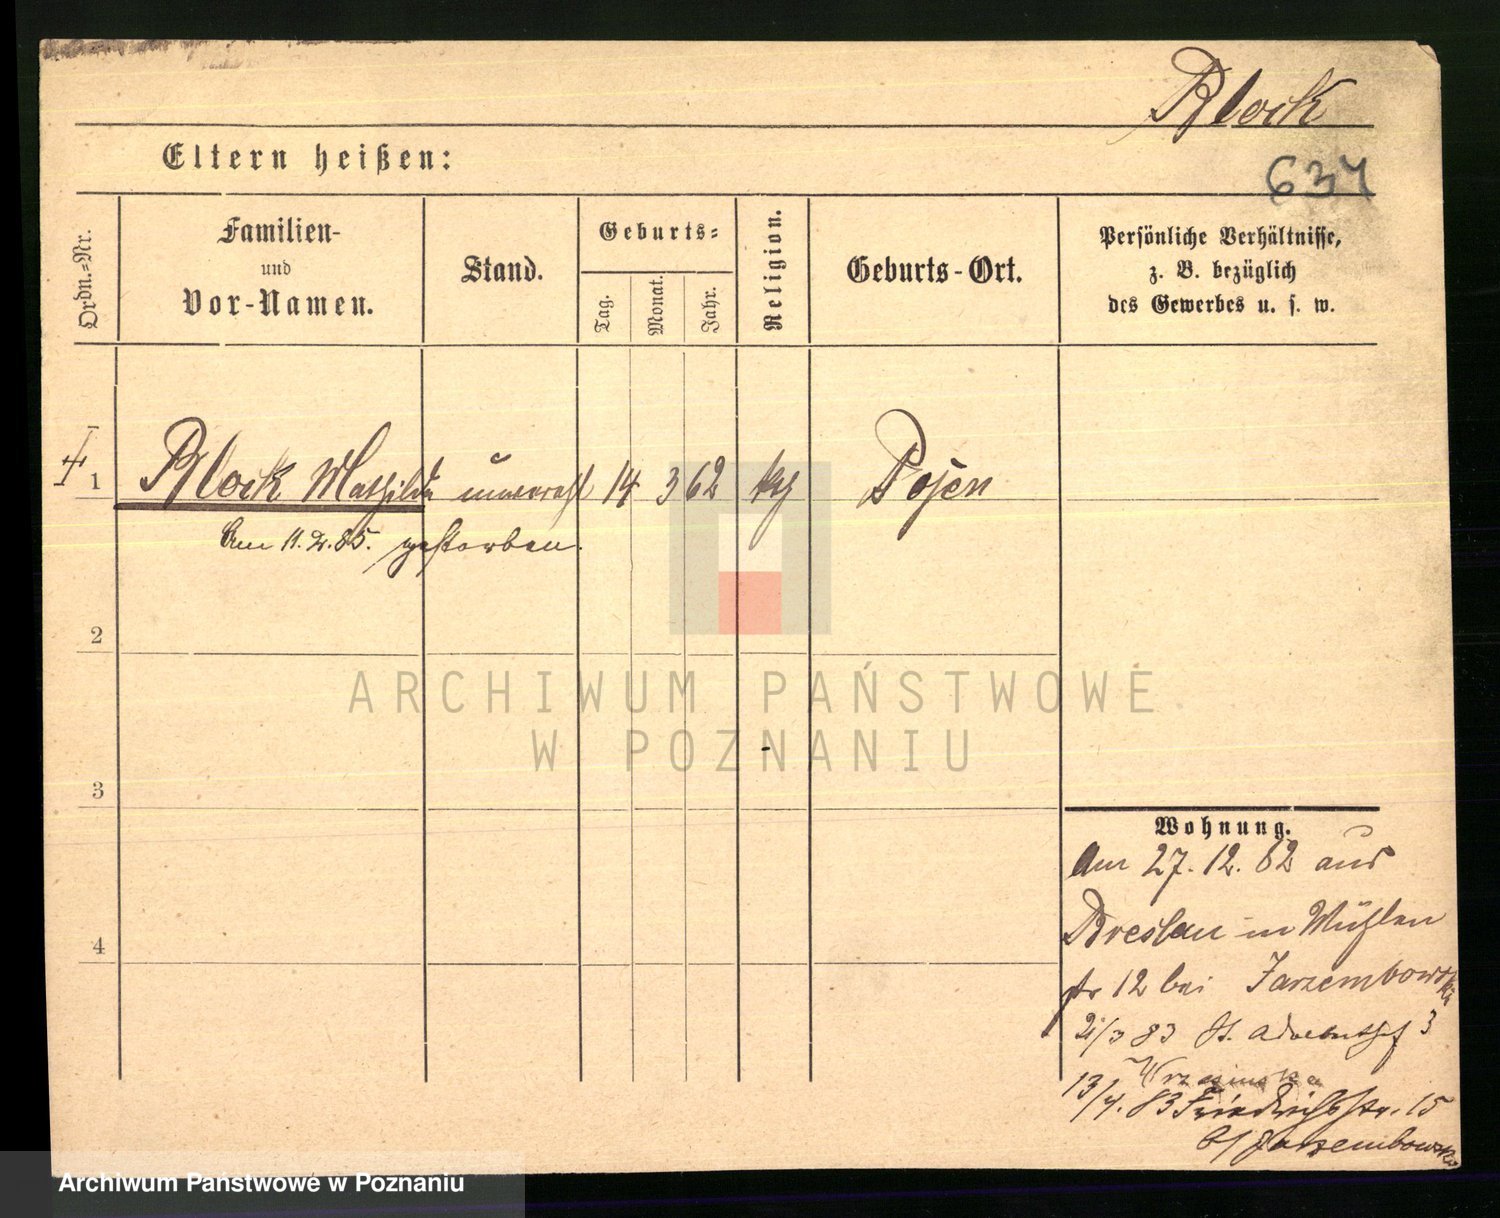 Block
637
Eltern heißen:
Ordn.=Nr.
Familien-
und
Vor-Namen.
Stand.
Geburts=
Tag.
Monat.
Jahr.
Religion.
Geburts-Ort.
Persönliche Verhältnisse,
z. B. bezüglich
des Gewerbes u. s. w.
1 Block Mathilde unverehl 14 3 62 kth Posen
Am 11.2.85. gestorben.
2
3
4
ARCHIWUM PAŃSTWOWE
W POZNANIU
Wohnung.
Am 27.12.82 aus
Breslau in Mühlen
str 12 bei Jarzembowska
/3 83 St. Adalbertstr 3
13/4.83 Friedrichstr. 15
b/ Jarzembowska
Archiwum Państwowe w Poznaniu